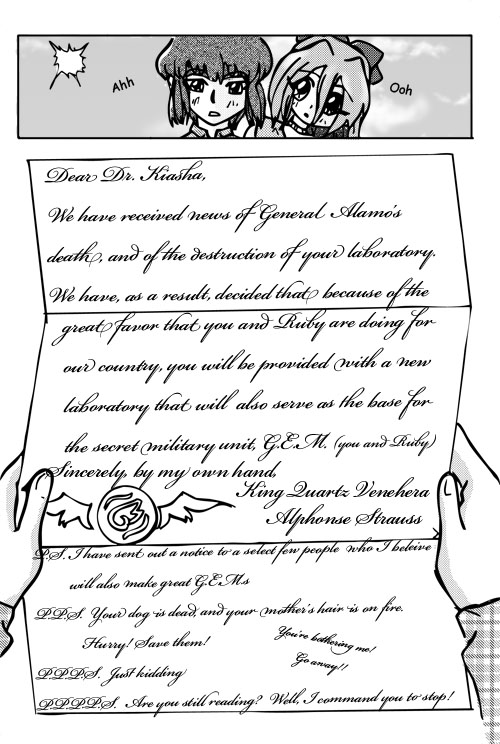 Ahh
Ooh
Dear Dr. Kiasha,
We have received news of General Alamo's
death, and of the destruction of your laboratory.
We have, as a result, decided that because of the
great favor that you and Ruby are doing for
our country, you will be provided with a new
laboratory that will also serve as the base for
the secret military unit, G.E.M. (you and Ruby)
Sincerely, by my own hand,
King Quartz Venehera
Alphonse Strauss
P.S. I have sent out a notice to a select few people who I beleive
will also make great G.E.M.s
P.P.S. Your dog is dead, and your mother's hair is on fire.
Hurry! Save them!
You're bothering me!
Go away!!
P.P.P.S. Just kidding
P.P.P.P.S. Are you still reading? Well, I command you to stop!